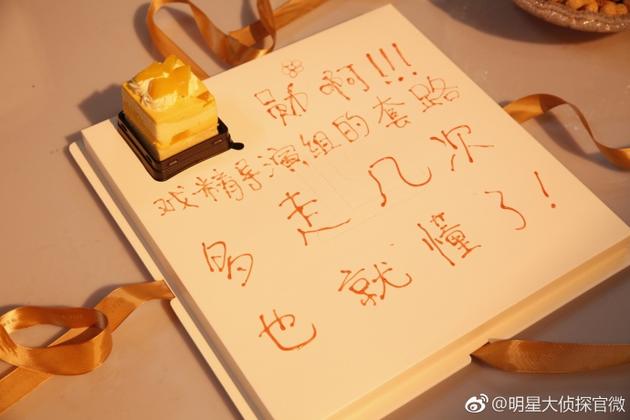 勋啊!!!
戏精导演组的套路
多走几次
也就懂了!
@明星大侦探官微